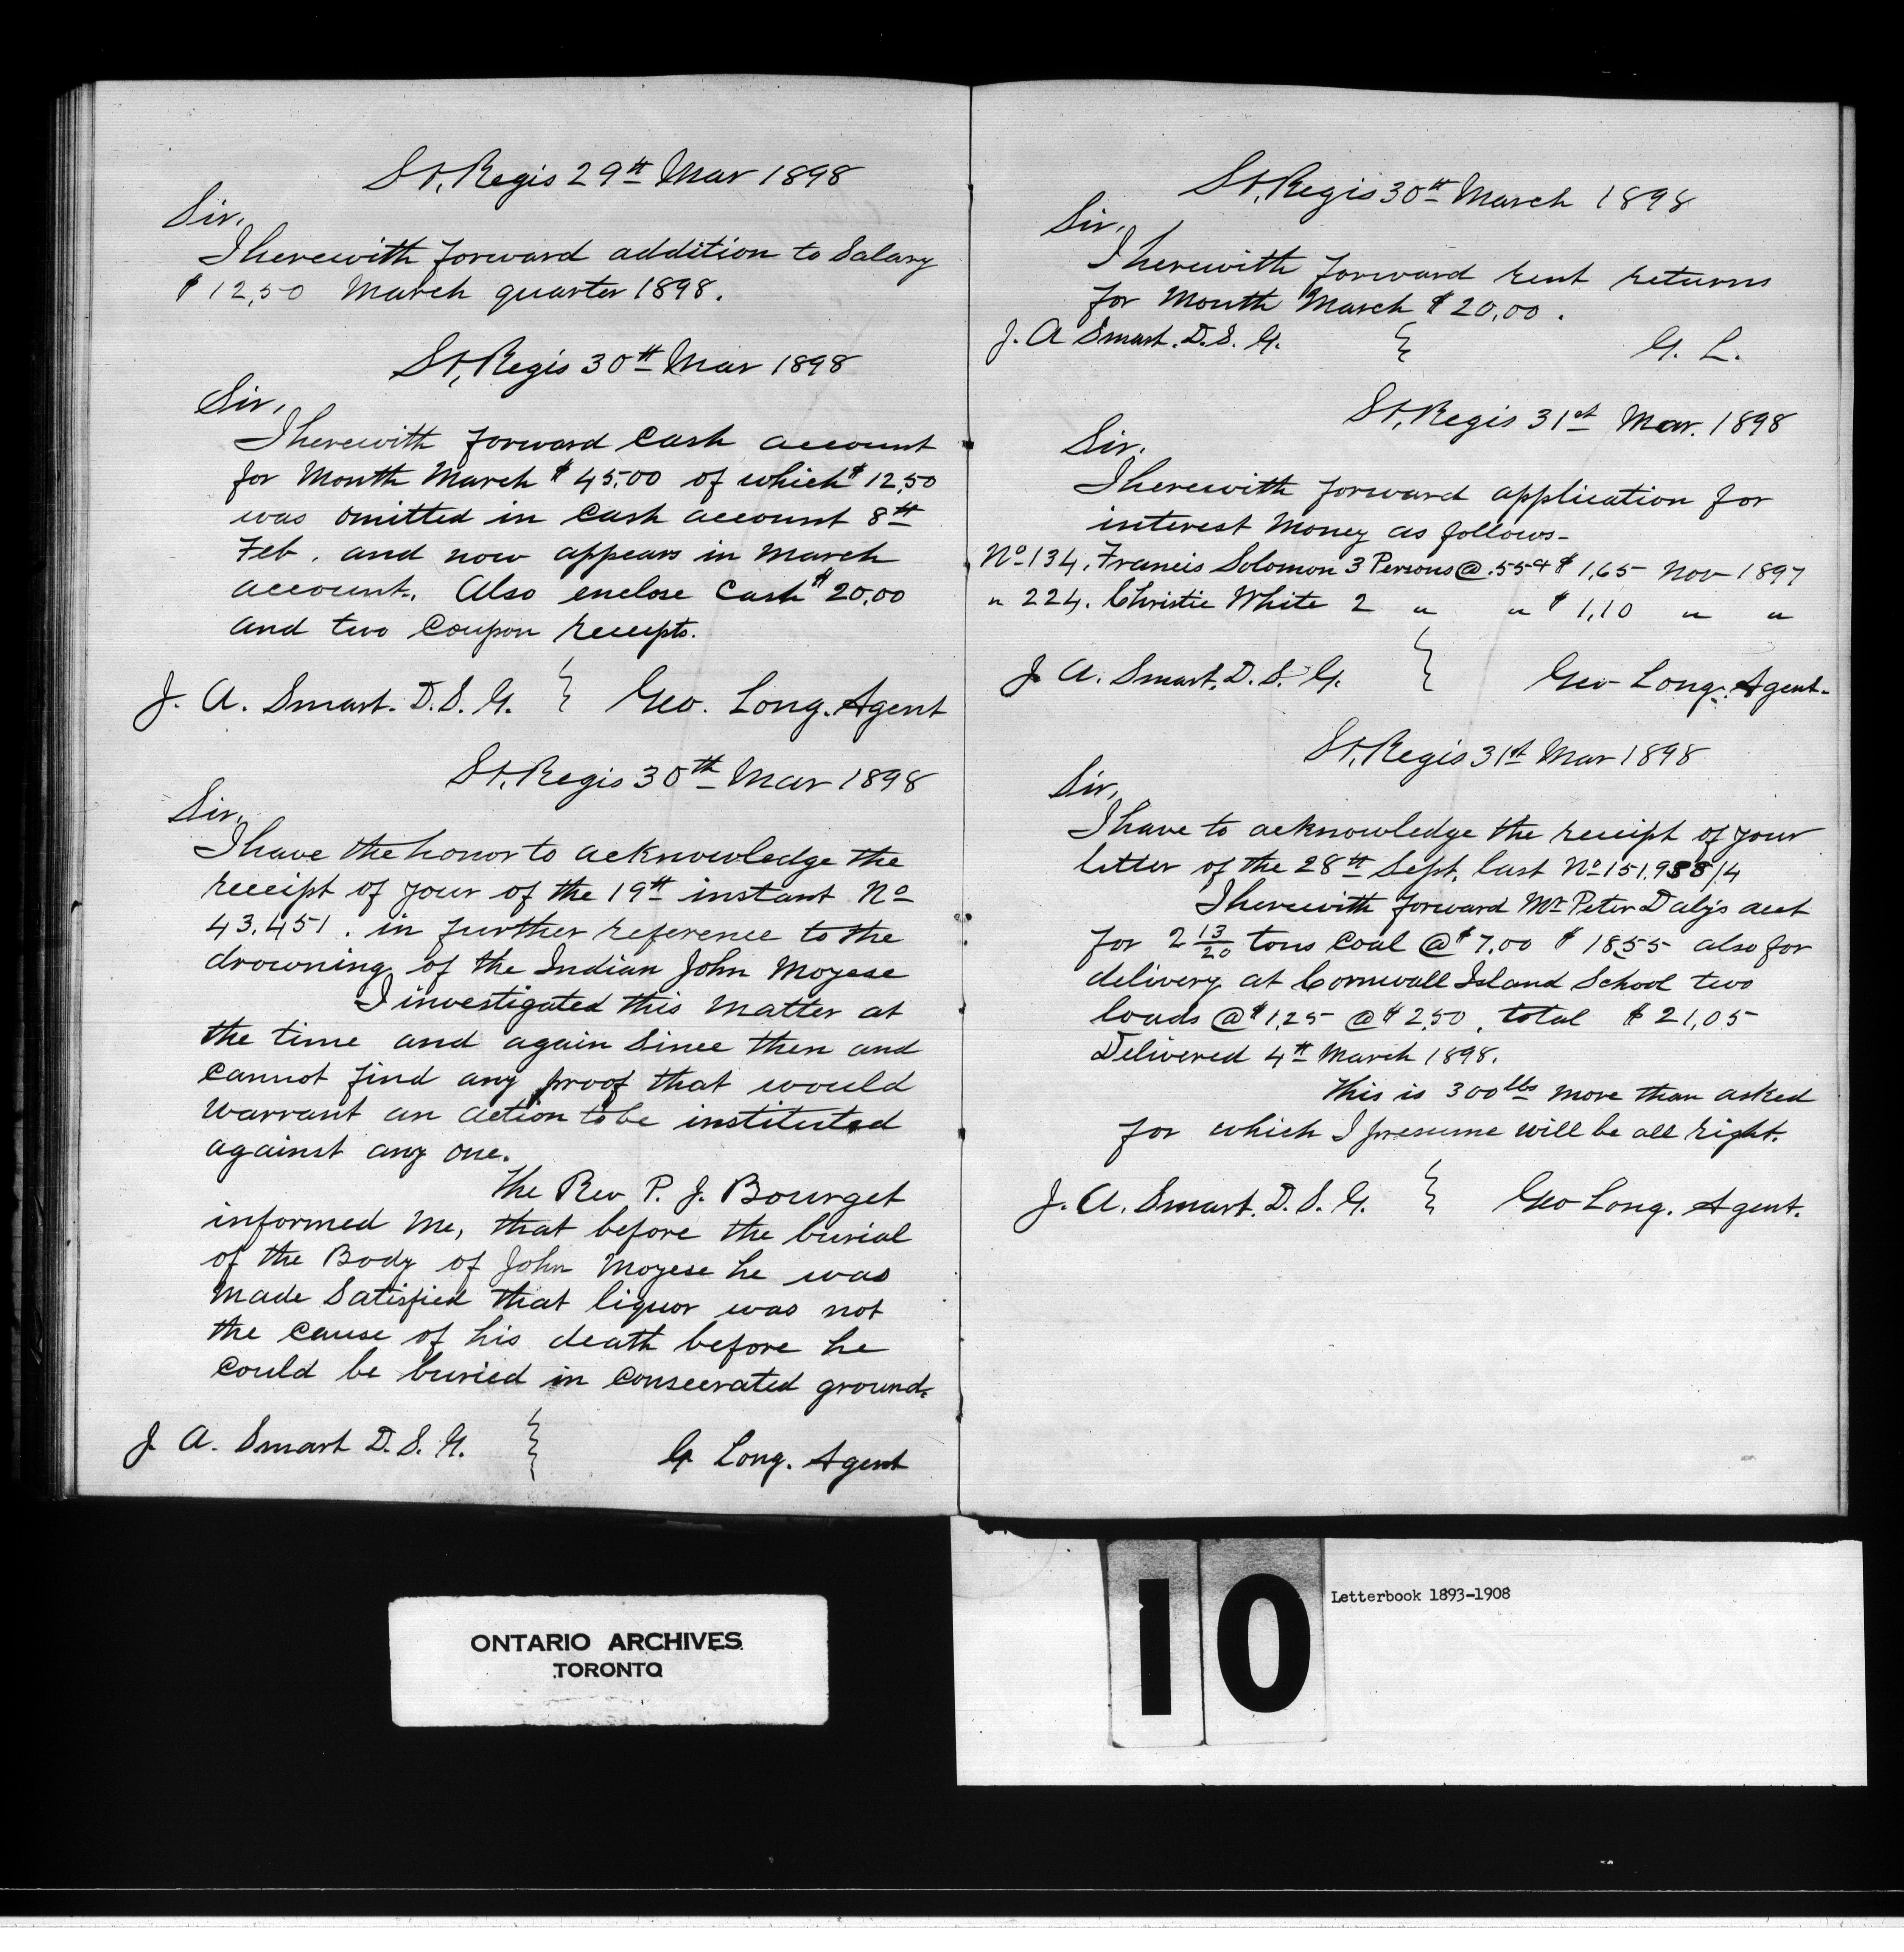 St, Regis 29th Mar 1898
Sir,
I herewith forward addition to Salary
$12,50 March quarter 1898.
St, Regis 30th Mar 1898
Sir,
I herewith forward Cash account
for Month March $45,00 of which $12,50
was omitted in Cash account 8th
Feb. and now appears in March
account. Also enclose Cash $20,00
and two Coupon receipts.
J. A. Smart. D. S. G. } Geo. Long. Agent
St, Regis 30th Mar 1898
Sir,
I have the honor to acknowledge the
receipt of your of the 19th instant No
43,451. in further reference to the
drowning of the Indian John Moyese
I investigated this Matter at
the time and again Since then and
cannot find any proof that would
warrant an action to be instituted
against any one.
The Rev P. J. Bourget
informed Me, that before the burial
of the Body of John Moyese he was
Made Satisfied that liquor was not
the cause of his death before he
could be buried in Consecrated ground.
J. A. Smart D. S. G. } G Long. Agent
St, Regis 30th March 1898
Sir,
I herewith forward rent returns
for Month March $20,00.
J. A Smart. D. S. G. } G. L.
St, Regis 31st Mar. 1898
Sir.
I herewith forward application for
interest Money as follows-
No 134. Francis Solomon 3 Persons @ .55¢ $1,65 Nov 1897
" 224. Christie White 2 " " $1,10 " "
J. A. Smart. D. S. G. } Geo Long. Agent-
St, Regis 31st Mar 1898
Sir,
I have to acknowledge the receipt of your
letter of the 28th Sept. last No 151,988/4
I herewith forward Mr Peter Daly's acct
for 2 13/20 tons Coal @ $7,00 $18,55 also for
delivery at Cornwall Island School two
loads @ $1,25 @ $2,50, total $21,05
Delivered 4th March 1898.
This is 300 lbs more than asked
for which I presume will be all right.
J. A. Smart. D. S. G. } Geo Long. Agent.
ONTARIO ARCHIVES
TORONTO
10
Letterbook 1893-1908